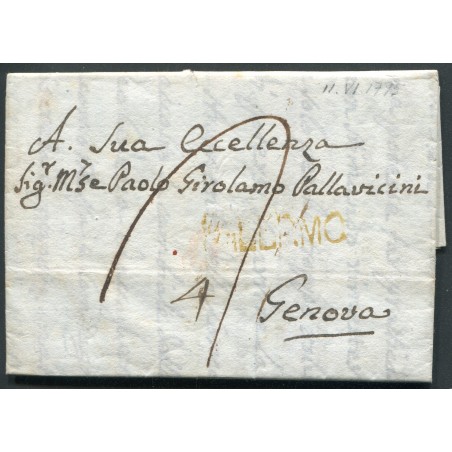 11. VI. 179
A. Sua Eccellenza
Sig.r M.se Paolo Girolamo Pallavicini
PALERMO
4
Genova